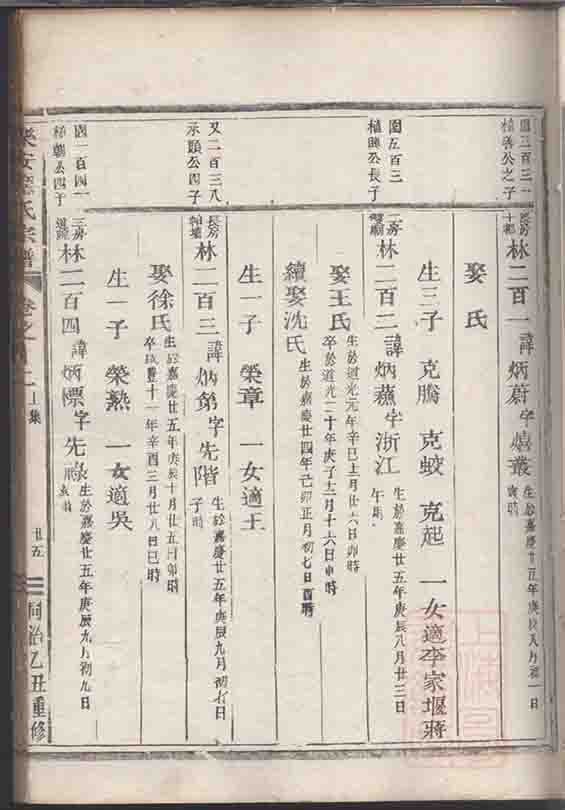 園三百三一
植善公之子
長房
林二百一 諱炳蔚 字熺叢 生於嘉慶廿五年庚辰八月初一日
寅時
娶氏
生三子 克騰 克蛟 克起 一女適李家堰蔣
園五百三
植興公長子
二房
林二百二 諱炳蕪 字浙江 生於嘉慶廿五年庚辰八月廿三日
午時
娶王氏 生於道光元年辛巳十月廿六日卯時
卒於道光二十年庚子十二月十六日申時
續娶沈氏 生於嘉慶廿四年己卯正月初七日酉時
生一子 榮章 一女適王
又二百三八
承顯公四子
長房
林二百三 諱炳第 字先階 生於嘉慶廿五年庚辰九月初七日
子時
娶徐氏 生於嘉慶廿五年庚辰十月廿五日卯時
卒咸豐十一年辛酉三月廿八日巳時
生一子 榮熟 一女適吳
園一百四一
植朝公四子
三房
林二百四 諱炳慓 字先祿 生於嘉慶廿五年庚辰九月初九日
氏宗譜 卷之 二 上集 廿五 同治乙丑重修